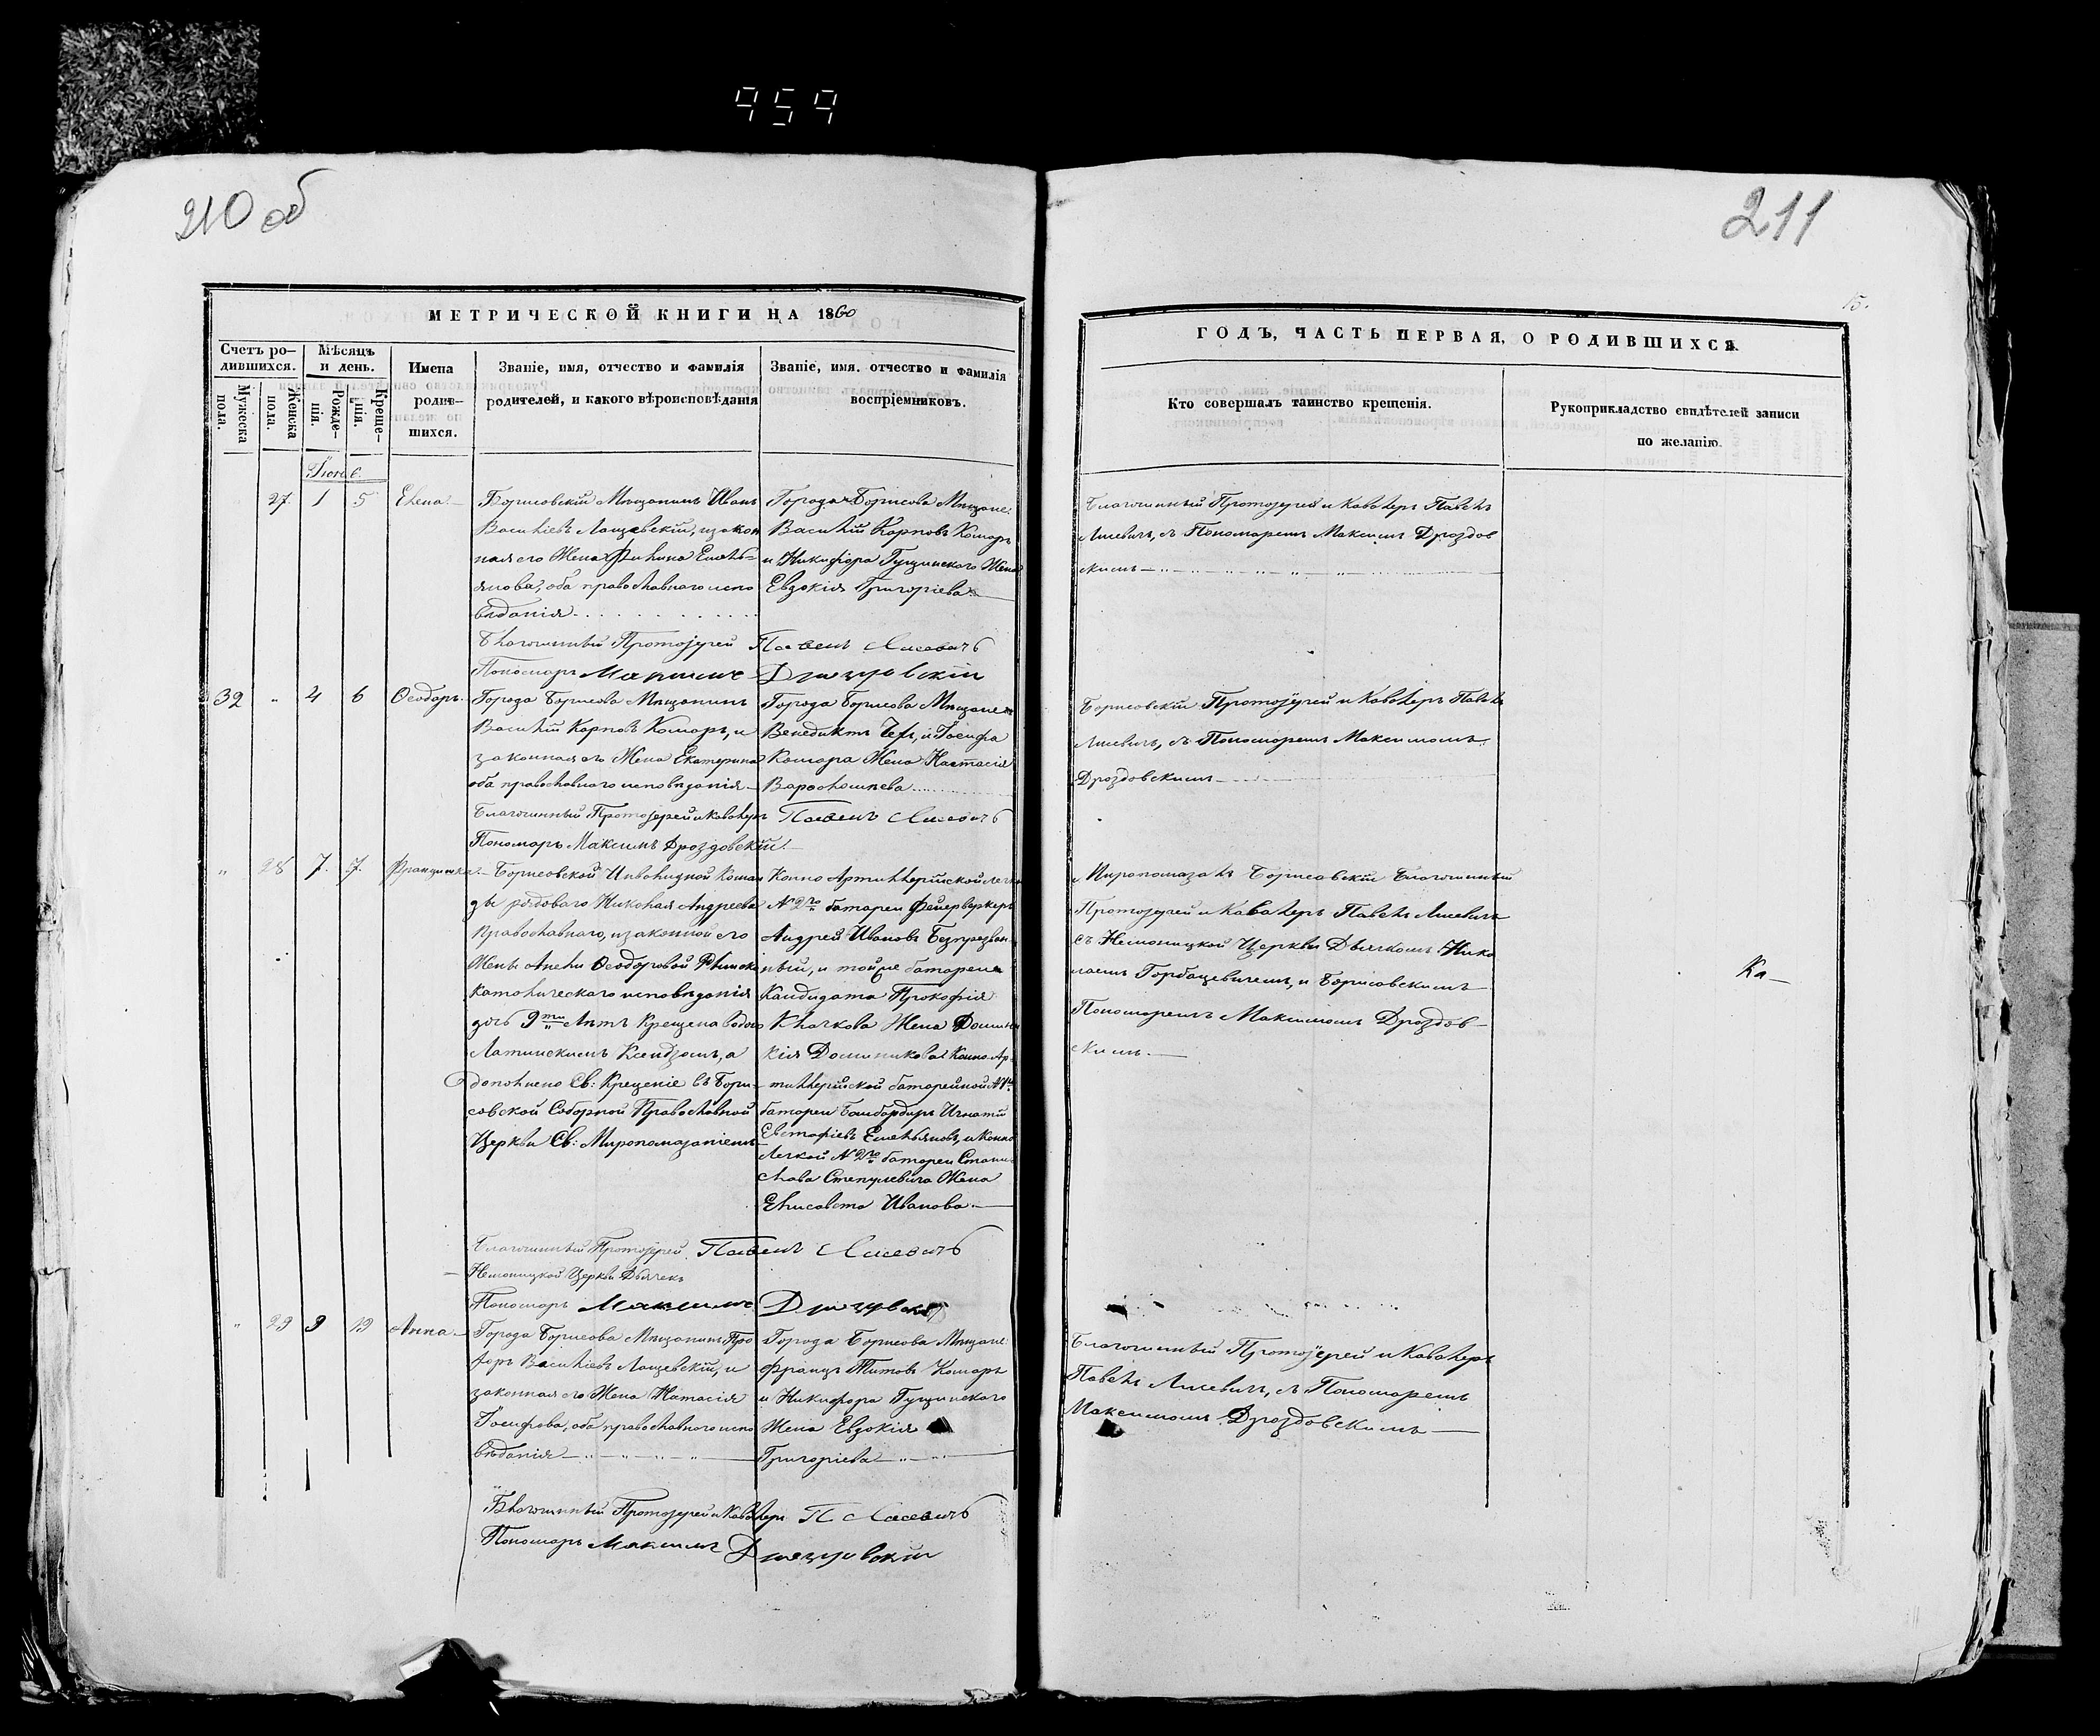 959
210 об
211
15.
МЕТРИЧЕСКОЙ КНИГИ НА 1860
ГОДЪ, ЧАСТЬ ПЕРВАЯ, О РОДИВШИХСЯ.
Счетъ ро–
дившихся.
Мужеска
пола.
Женска
пола.
Мѣсяцъ
и день.
Рожде–
нія.
Креще–
нія.
Имена
родив–
шихся.
Званіе, имя, отчество и фамилія
родителей, и какого вѣроисповѣданія
Званіе, имя, отчество и фамилія
воспріемниковъ.
Кто совершалъ таинство крещенія.
Рукоприкладство свидѣтелей записи
по желанію.
Іюнь
27. 1 5 Елена
Борисовскій Мѣщанинъ Иванъ
Васильевъ Лащевскій, и закон
ная его Жена Филина Емель–
янова, оба православнаго испо
вѣданія
Города Борисова Мѣщане:
Василій Карповъ Комаръ
и Никифора Гущинскаго Жена
Евдокія Григоріева
Благочинный Протоіерей и Кавалеръ Павелъ
Лисевичъ, съ Пономаремъ Максимъ Дроздов
скимъ
Благочинный Протоіерей Павелъ Лисевичъ
Пономарь Максимъ Дроздовскій
32 „ 4 6 Ѳеодоръ
Города Борисова Мѣщанинъ
Василій Карповъ Комаръ, и
законная его Жена Екатерина
оба православнаго исповѣданія
Города Борисова Мѣщане
Венедиктъ, и Іосифа
Комара Жена Настасія
Варѳоломѣева
Борисовскій Протоіерей и Кавалеръ Павелъ
Лисевичъ, съ Пономаремъ Максимомъ
Дроздовскимъ
Благочинный Протоіерей и Кавалеръ Павелъ Лисевичъ
Пономарь Максимъ Дроздовскій
„ 28 7. 7. Францишка
Борисовской Инвалидной Коман
ды рядоваго Николая Андреева
Православнаго, и законной его
Жены Анели Ѳеодоровой Римско
Католическаго исповѣданія
дочь 9ти Лѣтъ Крещена водою
Латинскимъ Ксендзомъ, а
дополнено Св: Крещеніе въ Бори–
совской Соборной Православной
Церкви Св: Миропомазаніемъ
Конно Артиллерійской легко
№ 2го батареи Фейерверкеръ
Андрей Ивановъ Безпрозван–
ный, и той же батареи
Кандидата Прокофія
Клачкова Жена Домини
кія Доминикова Конно Ар–
тиллерійской батарейной
батареи Бомбардиръ Игнатій
Евстафіевъ Емельяновъ, и Конно
Легкой № 2го батареи Стани–
слава Степулевича Жена
Елисавета Иванова
Миропомазалъ Борисовскій Благочинный
Протоіерей и Кавалеръ Павелъ Лисевичъ
съ Немоницкой Церкви Дьячкомъ Нико
лаемъ Горбацевичемъ, и Борисовскимъ
Пономаремъ Максимомъ Дроздов–
скимъ
Ка–
Благочинный Протоіерей Павелъ Лисевичъ
Немоницкой Церкви Дьячекъ
Пономарь Максимъ Дроздовскій
„ 29 9 19 Анна
Города Борисова Мѣщанинъ Про
форъ Васильевъ Лащевскій, и
законная его Жена Натасія
Іосифова, оба православнаго испо
вѣданія
Города Борисова Мѣщане
Францъ Титовъ Комаръ
и Никифора Гущинскаго
Жена Евдокія
Григоріева
Благочинный Протоіерей и Кавалеръ
Павелъ Лисевичъ, съ Пономаремъ
Максимомъ Дроздовскимъ
Благочинный Протоіерей и Кавалеръ П Лисевичъ
Пономарь Максимъ Дроздовскій